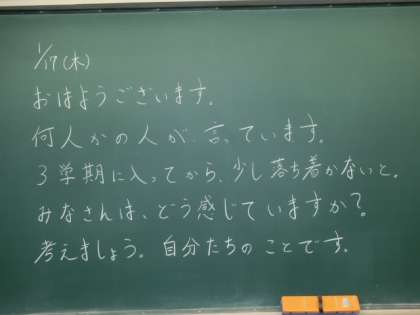 1/17(木)
おはようございます。
何人かの人が言っています。
3学期に入ってから、少し落ち着かないと。
みなさんは、どう感じていますか?
考えましょう。自分たちのことです。